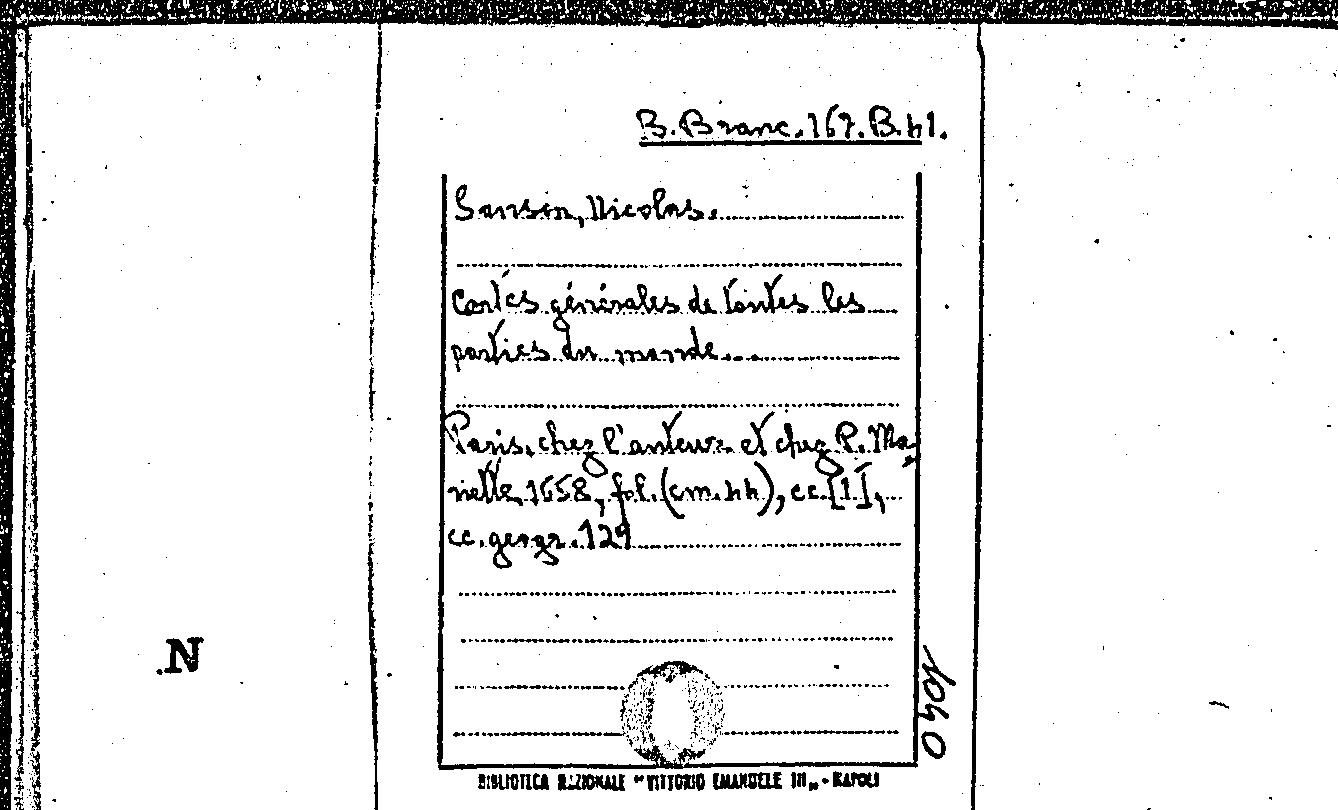 B. Branc. 167. B. 41.
Sanson, Nicolas.
Cartes générales de toutes les
parties du monde...
Paris, chez l'auteur et chez P. Ma-
riette, 1658, fol. (cm. 44), cc. [1],
cc. geogr. 129
N
1040
BIBLIOTECA NAZIONALE "VITTORIO EMANUELE III" - NAPOLI